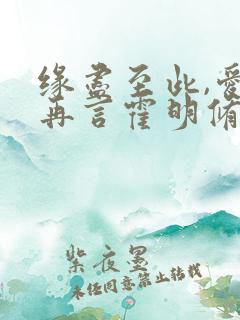 缘尽至此,爱
再言霍明脩
紫夜墨
未经同意禁止转载